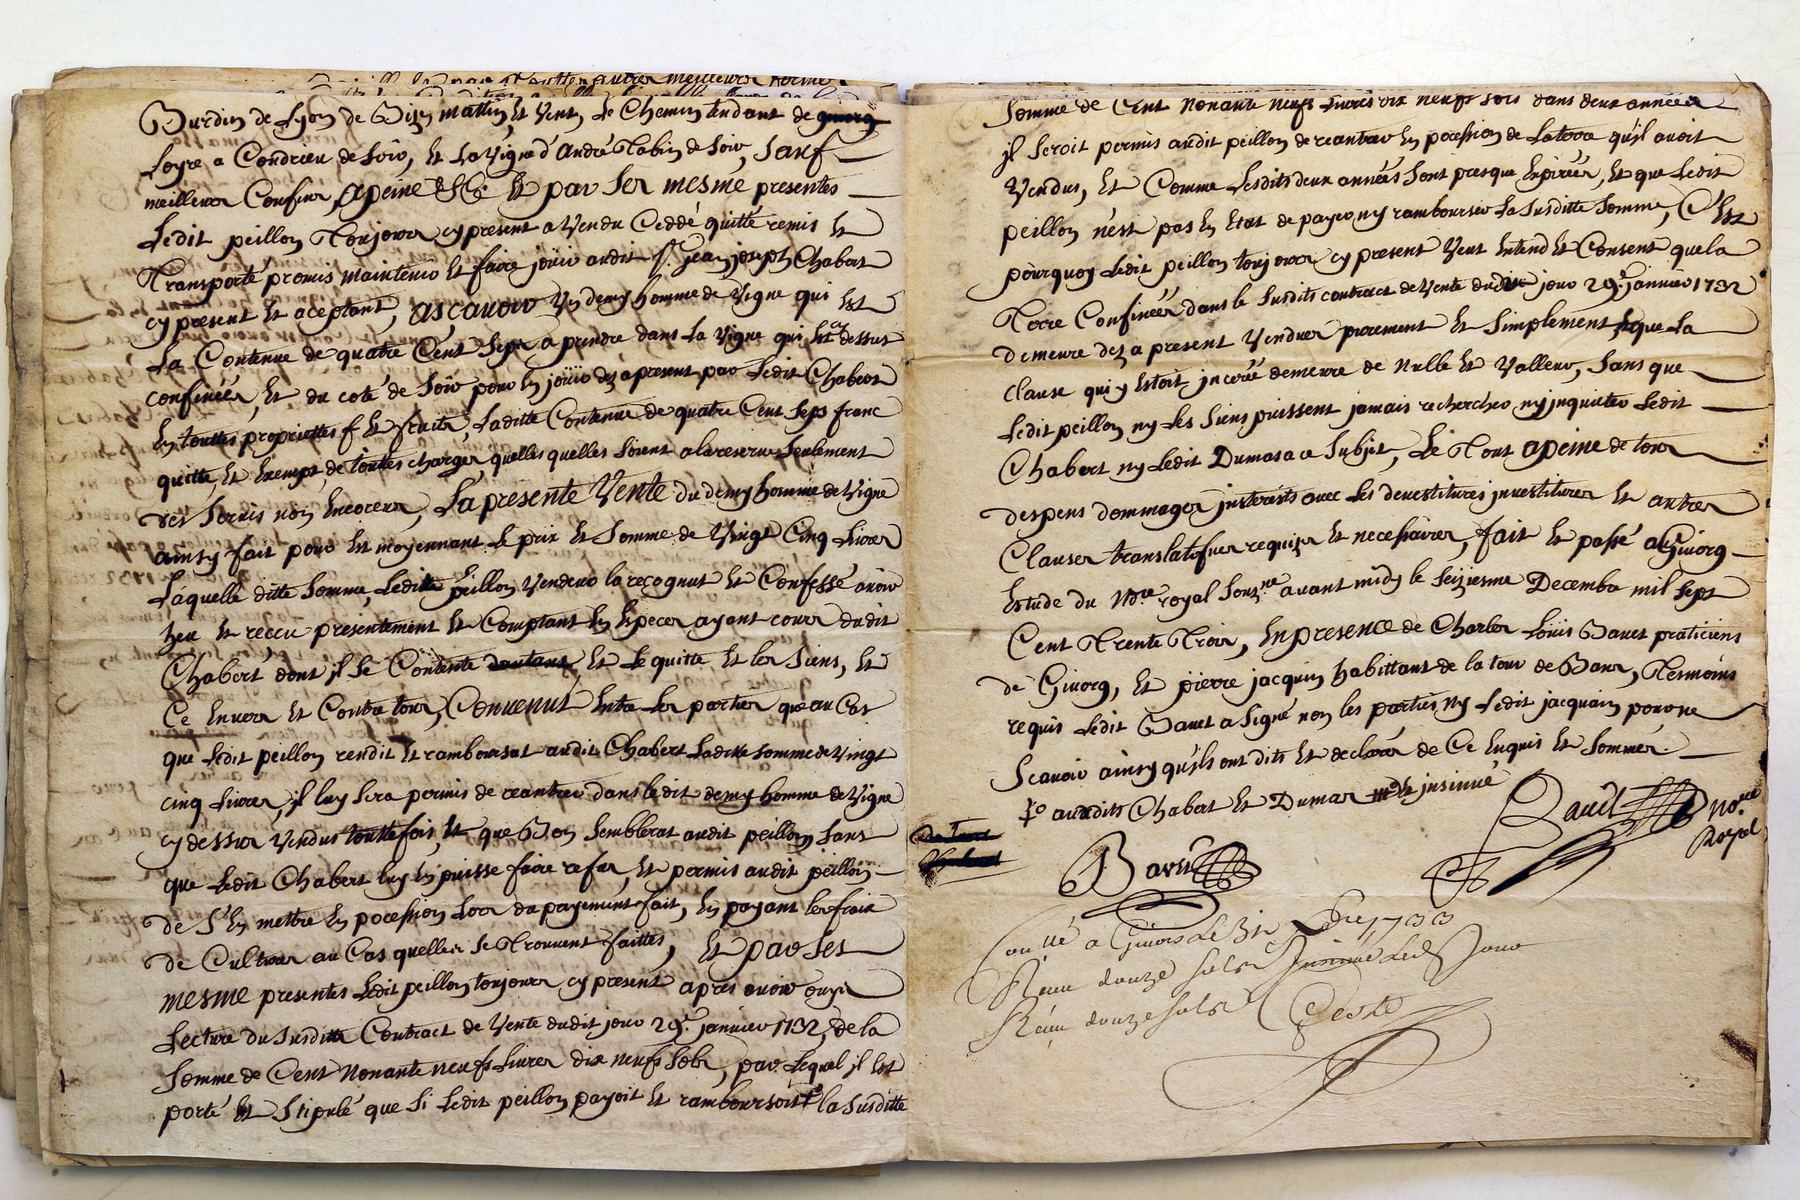 Burdin de Lyon de Bize mattin, Et Vent, Le Chemin tendant de givorg
Loyre a Condrieu de Soir, Et La Vigne d'André Rabin de Soir, Sauf
meilleurs Confins, apeine &c Et par Ses mesme presentes
Ledit peillon Toujours cy present a Vendu Ceddé quitté remis Et
Transporté promis maintenir Et faire joüir audit Sr. jean joseph Chabert
cy present Et aceptant, ascavoir Un demy homme de Vigne qui Est
La Contenue de quatre Cent Seps, a prendre dans La Vigne qui Est cy dessus
confinées, Et du coté de Soir pour En joüir dez apresent par Ledit Chabert
En touttes proprietes Et fruits, Laditte Contenue de quatre Cent Seps franc
quitte, Et Exempt, de toutes charges quelles quelles Soient a la reserve Seulement
des Servis non Encoreus, La presente Vente du demy homme de Vigne
ainsy fait pour Et moyennant Le prix Et Somme de Vingt Cinq Livres
Laquelle ditte Somme, Ledit peillon Vendeur la recognut Et Confessé avoir
heu Et receu presentement Et Comptant En Especes ayant cours dudit
Chabert dont il Se Contente dautant, Et Le quitte Et les Siens, Et
Ce Envers Et Contre tous, Convenut Entre Les parties que au Cas
que Ledit peillon rendit Et rambourсat audit Chabert Laditte Somme de Vingt
cinq Livres, il luy Sera permis de reantrer dans ledit demy homme de Vigne
cy dessus Vendus touttefois, Et que Bon Semblerat audit peillon Sans
que Ledit Chabert luy En puisse faire refus, Et permis audit peillon
de S'En mettre En pocession Lors du payement fait, En payant les fraix
de Culture au Cas quelles Se Trouvent faittes, Et par Ses
mesme presentes Ledit peillon toujours cy present apres avoir ouye
Lecture du Susditte Contract de Vente dudit jour 29e. janvier 1732, de la
Somme de Cent Nonante neufs Livres dix neufs Sols, par Lequel il Est
porté Et Stipulé que Si Ledit peillon payoit Et ramboursoit la Susditte
Somme de Cent Nonante neufs Livres dix neufs Sols dans deux années
il Seroit permis audit peillon de reantrer En pocession de La terre qu'il avoit
Vendus, Et Comme Lesdits deux années Sont presque Expirées, Et que Ledit
peillon n'est pas En Etat de payer ny rambourser La Susditte Somme, C'Est
pourquoy Ledit peillon toujours cy present Veut Entend Et Consent que la
Terre Confinées dans le Susdits contract de Vente dudit jour 29e. janvier 1732
demeure dez a present Vendues purement Et Simplement, Et que La
Clause qui y Estoit incerée demeure de Nulle Et Valleur, Sans que
Ledit peillon ny Les Siens puissent jamais rechercher ny inquieter Ledit
Chabert ny Ledit Dumas a ce Subjet, Le Tout apeine de tous
despens dommages interests avec Les devestitures investitures Et autres
Clauses translatifves requises Et necessaires, fait Et passé a Givorg
Estude du Nore. royal Sousné. avant midy le Seiziesme Decembre mil Sept
Cent Trente Trois, En presence de Charles Loüis Baret praticiens
de Givorg, Et pierre jacquin habittant de la tour de Bans, Tesmoins
requis Ledit Baret a Signé non les parties, Ny Ledit jacquain pour ne
Scavoir ainsy qu'ils ont dits Et declarés de Ce Enquis Et Sommés.
auxdits Chabert Et Dumas insinué
Baret
Nore.
Royal
Conllé a Givors Le 31e Xbre 1733
Receu douze Sols Insinué Led Jour
Receu douze Sols